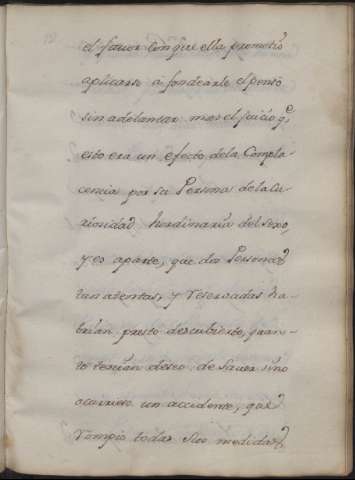 el fauor con que ella prometio
aplicarse á sondearle el penso
sin adelantar mas el juicio q.e
esto era un efecto de la Compla-
cencia por su Persona de la Cu-
riosidad hordinaria del sexo,
y es aparte, que dos Personas
tan atentas, y reservadas ha-
brian presto descubierto, quan-
to tenian deseo de saver sino
ocurriese un accidente, que
rompio todas sus medidas